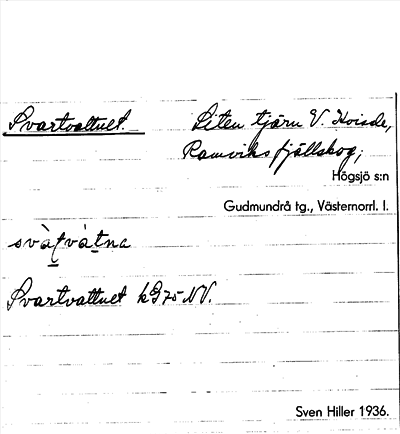 Svartvattnet. Liten tjärn V. Hoisde,
Ramviks fjällskog;
Högsjö s:n
Gudmundrå tg., Västernorrl. l.
svàt̲vàt̲na
Svartvattnet kB 75 NV.
Sven Hiller 1936.